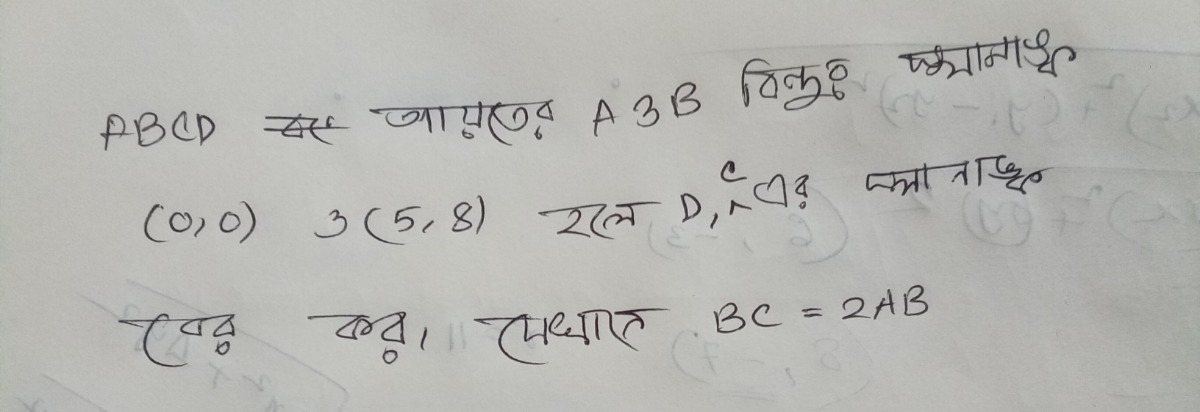 ABCD আয়তের A ও B বিন্দুর স্থানাঙ্ক
(0,0) ও (5,8) হলে D, C এর স্থানাঙ্ক
বের কর, যেখানে BC = 2AB